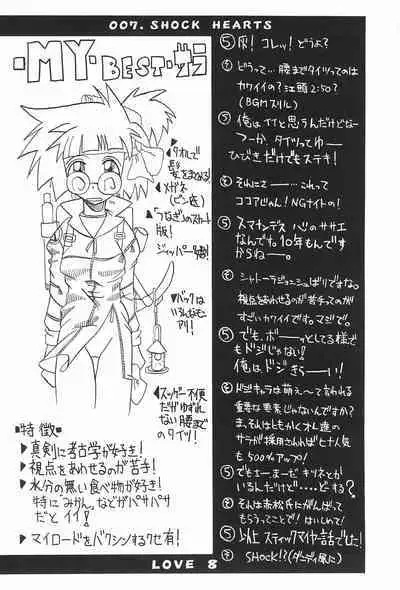 007. SHOCK HEARTS
・MY・BEST・サラ
▶タオルで
髪をまとめる
▶メガネ
(ビン底)
▶「つなぎ」のスカート
版!
ジッパー
▶バックは
いろんなもん
アリ!
▶スッゲー不便
だがゆずれ
ない腰まで
のタイツ!
■特徴■
▶真剣に考古学が好き!
▶視点をあわせるのが苦手!
▶水分の無い食べ物が好き!
特にみかん。などがパサパサ
だとイイ!
▶マイロードをバクシンするクセ有!
⑤灰!コレッ!どうよ?
どうって…腰までタイツってのは
カワイイの?江頭2:50?
(BGMスリル)
⑤俺はイイと思うんだけどなー
つーか、タイツってゆー
ひびきだけでもステキ!
それにさー……これって
ココアじゃん!NGナイトの!
⑤スマナンデス ハのササエ
なんです。10年もんです
からねー。
シャトーラジョンシュばりですな。
視点をあわせるのが苦手ってのが
すごいカワイイです。マジで。
⑤でも、ボーッとしてる様で
もドジじゃない!
俺はドジきらーい!
ドジキャラは萌え〜て言われる
重要な要素じゃないんですか?
ま、それはともかくオレ達の
サラが採用されればヒナ人気
も500%アップ!
⑤でもーまーだキツネとか
いるんだけど……どーする?
それは赤松氏にがんばって
もらうってことで!はじめて!
⑤以上スティックマイヤー話でした!
SHOCK!?(ダーディ風に)
LOVE 8